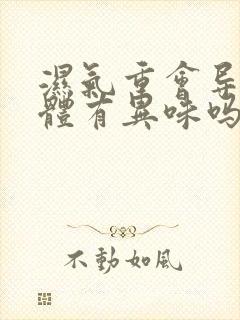 濕氣重會导
體有異味吗
不動如風